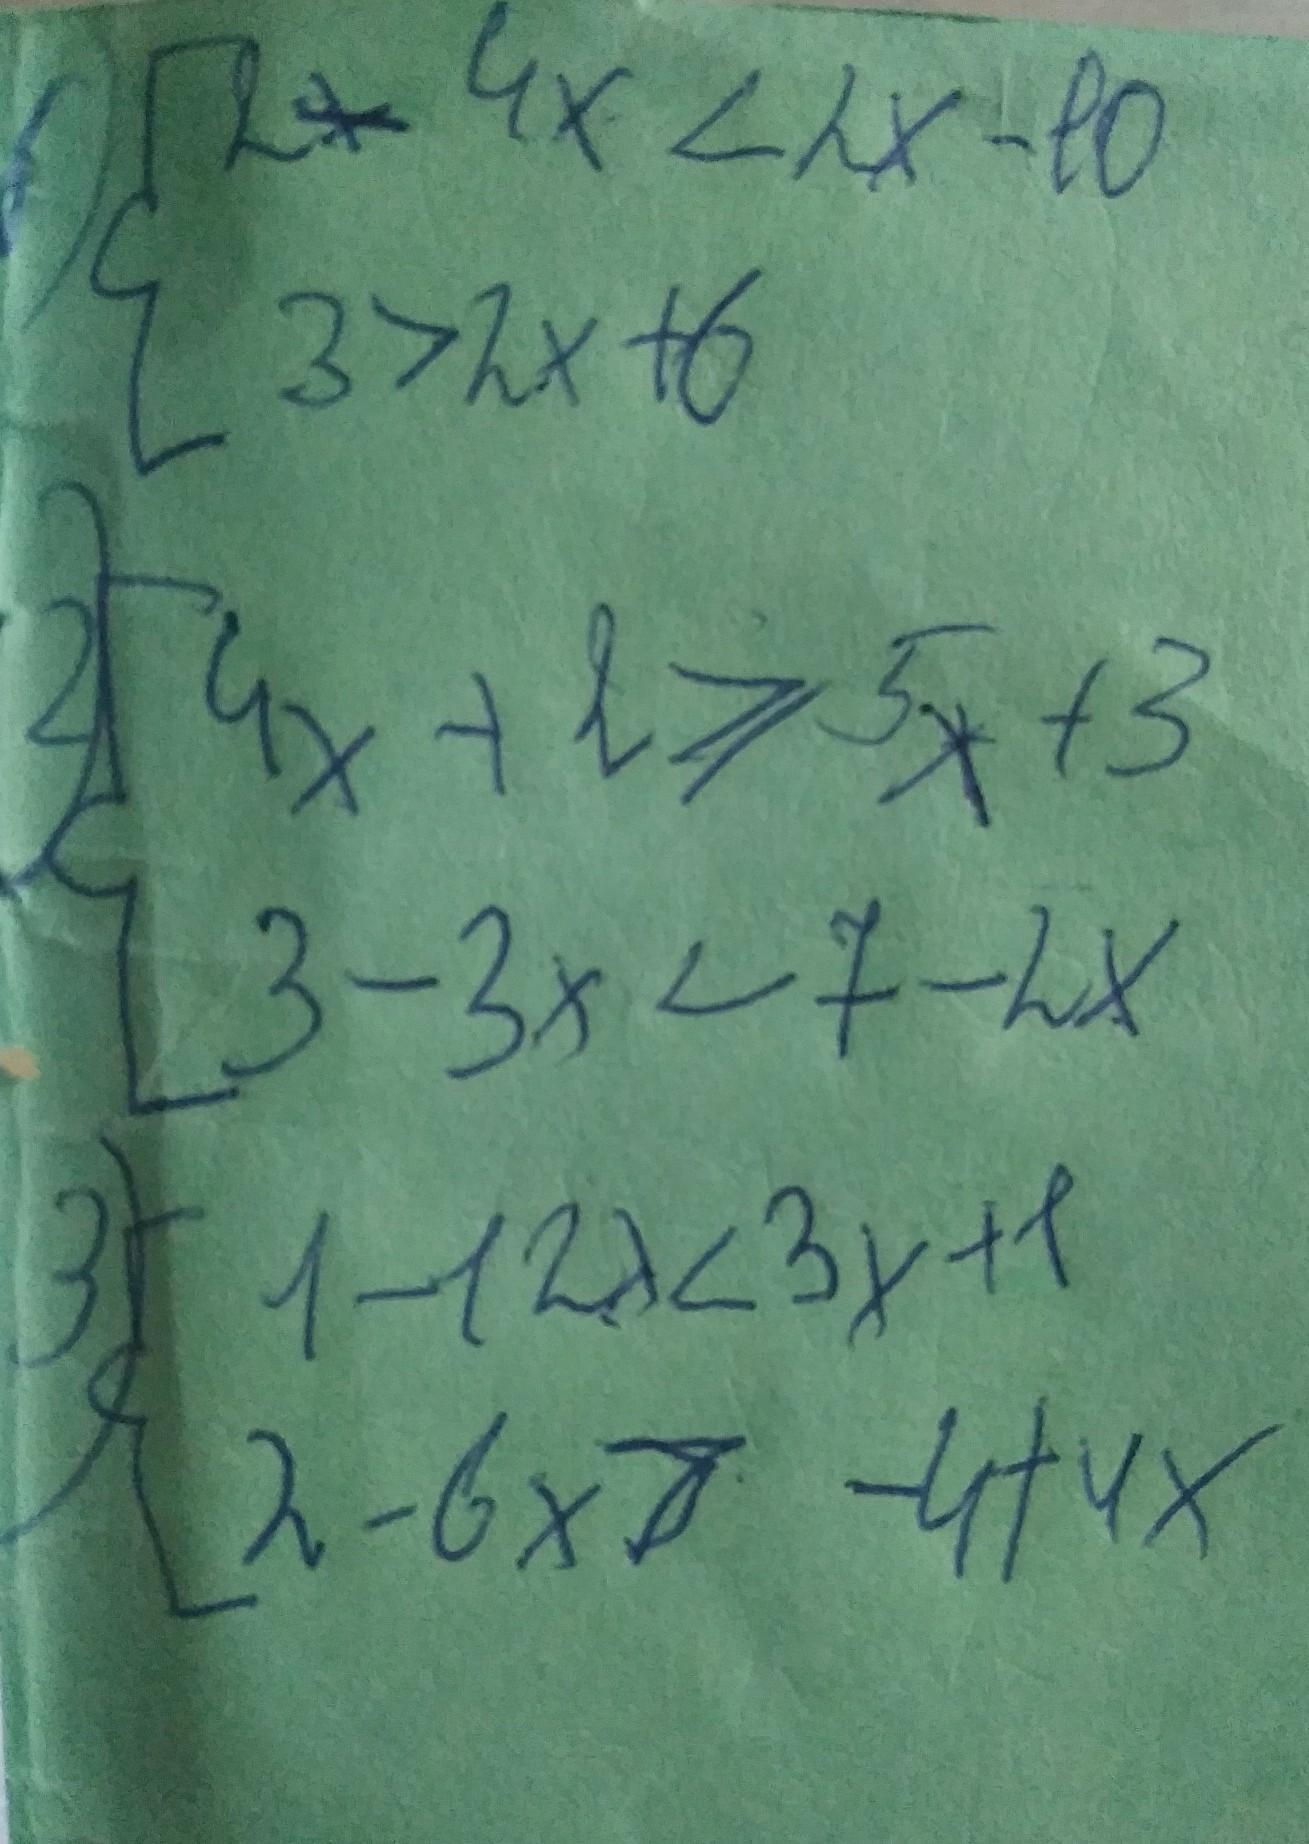 1) { 2 - 4x < 2x - 10
3 > 2x + 6
2) { 4x + 2 ⩾ 5x + 3
3 - 3x < 7 - 2x
3) { 1 - 12x < 3x + 1
2 - 6x > -4 + 4x